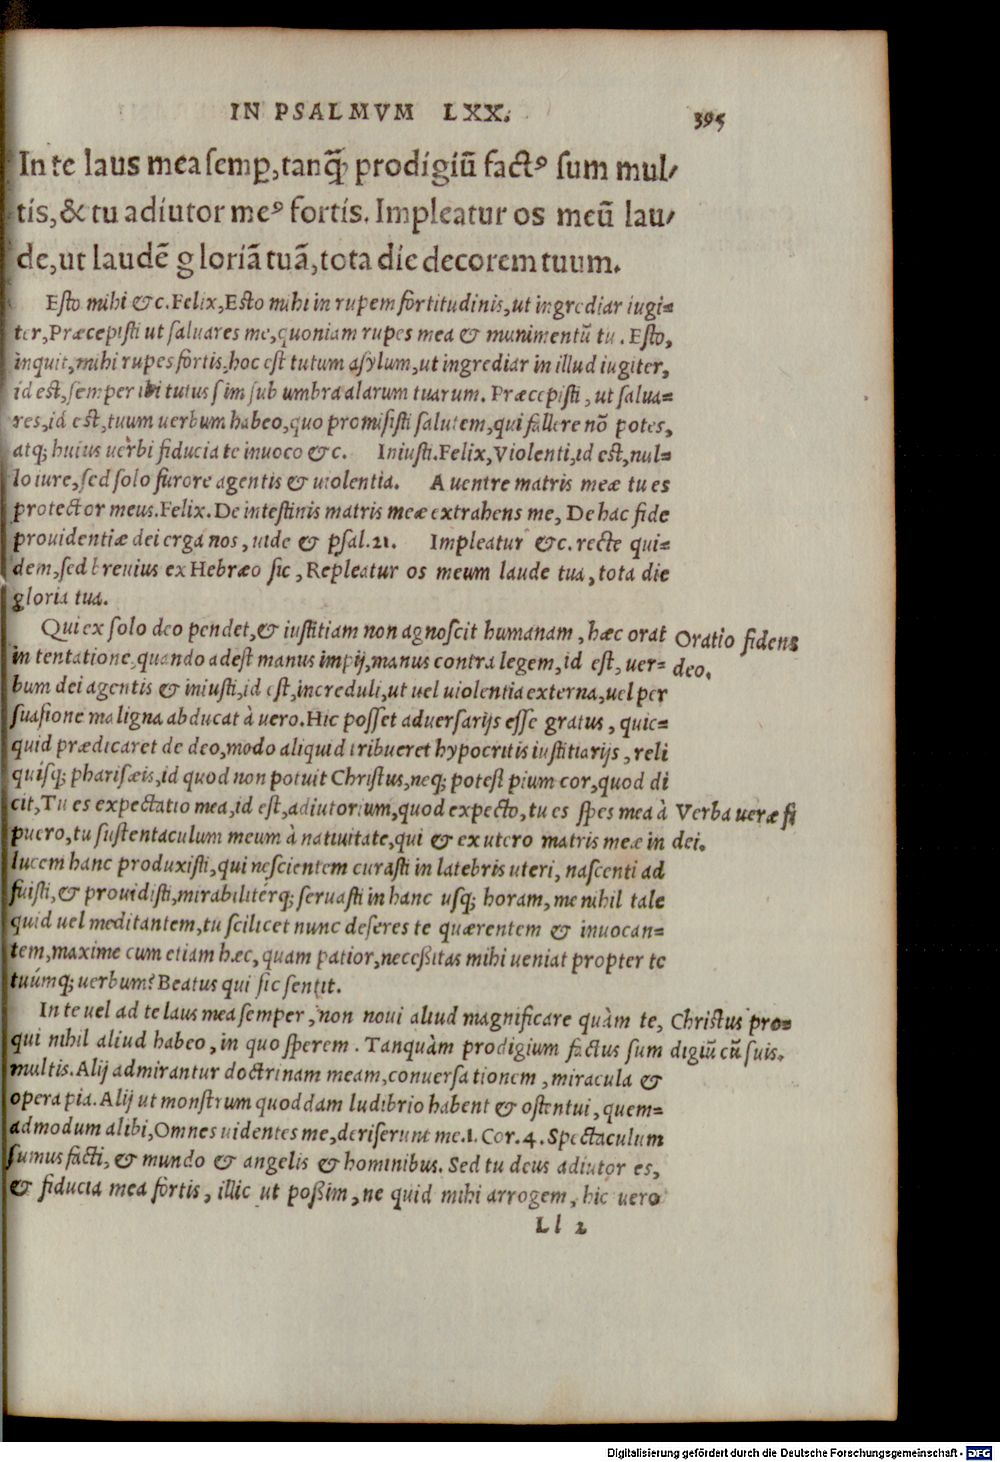 IN PSALMVM LXX. 395
In te laus mea semp, tanq̃ prodigiũ factꝰ sum mul-
tis, & tu adiutor meꝰ fortis. Impleatur os meũ lau-
de, ut laudẽ gloriã tuã, tota die decorem tuum.
Esto mihi &c. Felix, Esto mihi in rupem fortitudinis, ut ingrediar iugi=
ter, Præcepisti ut saluares me, quoniam rupes mea & munimentũ tu. Esto,
inquit, mihi rupes fortis, hoc est tutum asylum, ut ingrediar in illud iugiter,
id est, semper ibi tutus sim sub umbra alarum tuarum. Præcepisti, ut salua=
res, id est, tuum uerbum habeo, quo promisisti salutem, qui fallere nõ potes,
atq; huius uerbi fiducia te inuoco &c. Iniusti. Felix, Violenti, id est, nul=
lo iure, sed solo furore agentis & uiolentia. A uentre matris meæ tu es
protector meus. Felix. De intestinis matris meæ extrahens me, De hac fide
prouidentiæ dei erga nos, uide & psal. 21. Impleatur &c. recte qui=
dem, sed breuius ex Hebræo sic, Repleatur os meum laude tua, tota die
gloria tua.
Qui ex solo deo pendet, & iustitiam non agnoscit humanam, hæc orat
in tentatione, quando adest manus impij, manus contra legem, id est, uer=
bum dei agentis & iniusti, id est, increduli, ut uel uiolentia externa, uel per
suasione maligna abducat à uero. Hic posset aduersarijs esse gratus, quic=
quid prædicaret de deo, modo aliquid tribueret hypocritis iustitiarijs, reli
quisq; pharisæis, id quod non potuit Christus, neq; potest pium cor, quod di
cit, Tu es expectatio mea, id est, adiutorium, quod expecto, tu es spes mea à
puero, tu sustentaculum meum à natiuitate, qui & ex utero matris meæ in
lucem hanc produxisti, qui nescientem curasti in latebris uteri, nascenti ad
fuisti, & prouidisti, mirabilitérq; seruasti in hanc usq; horam, me nihil tale
quid uel meditantem, tu scilicet nunc deseres te quærentem & inuocan=
tem, maxime cum etiam hæc, quam patior, necessitas mihi ueniat propter te
tuúmq; uerbum? Beatus qui sic sentit.
Oratio fidens
deo.
Verba ueræ fi
dei.
In te uel ad te laus mea semper, non noui aliud magnificare quàm te,
qui nihil aliud habeo, in quo sperem. Tanquàm prodigium factus sum
multis. Alij admirantur doctrinam meam, conuersationem, miracula &
opera pia. Alij ut monstrum quoddam ludibrio habent & ostentui, quem=
admodum alibi, Omnes uidentes me, deriserunt me. 1. Cor. 4. Spectaculum
sumus facti, & mundo & angelis & hominibus. Sed tu deus adiutor es,
& fiducia mea fortis, illic ut possim, ne quid mihi arrogem, hic uero
Christus pro=
digiũ cũ suis.
Ll 2
Digitalisierung gefördert durch die Deutsche Forschungsgemeinschaft - DFG